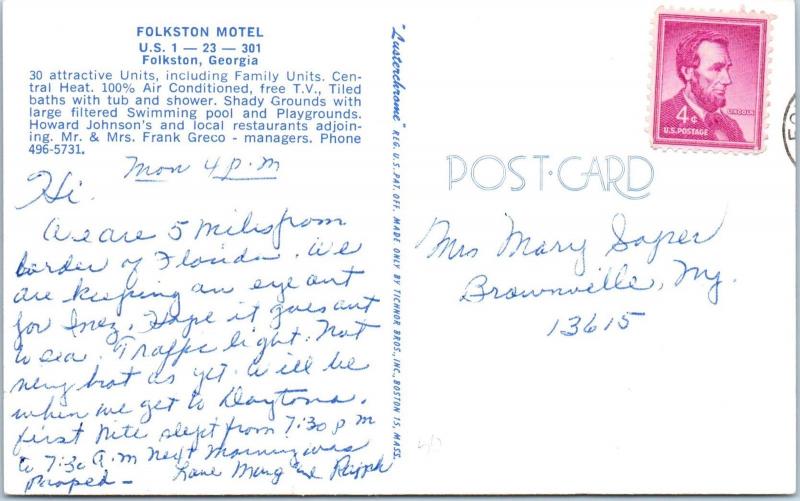 FOLKSTON MOTEL
U.S. 1 — 23 — 301
Folkston, Georgia
30 attractive Units, including Family Units. Cen-
tral Heat. 100% Air Conditioned, free T.V., Tiled
baths with tub and shower. Shady Grounds with
large filtered Swimming pool and Playgrounds.
Howard Johnson's and local restaurants adjoin-
ing. Mr. & Mrs. Frank Greco - managers. Phone
496-5731.
Mon 4 p.m
Hi.
We are 5 miles from
border of Florida. We
are keeping an eye out
for Inez. Hope it goes out
to sea. Traffic light. Not
very hot as yet. Will be
when we get to Daytona.
first nite slept from 7:30 p m
to 7:30 A.m next morning was
pooped — Love Marg and Ralph
"Lusterchrome" REG. U.S. PAT. OFF. MADE ONLY BY TICHNOR BROS., INC., BOSTON 15, MASS.
4¢
LINCOLN
U.S. POSTAGE
POST CARD
Mrs Mary Soper
Brownville, Ny.
13615